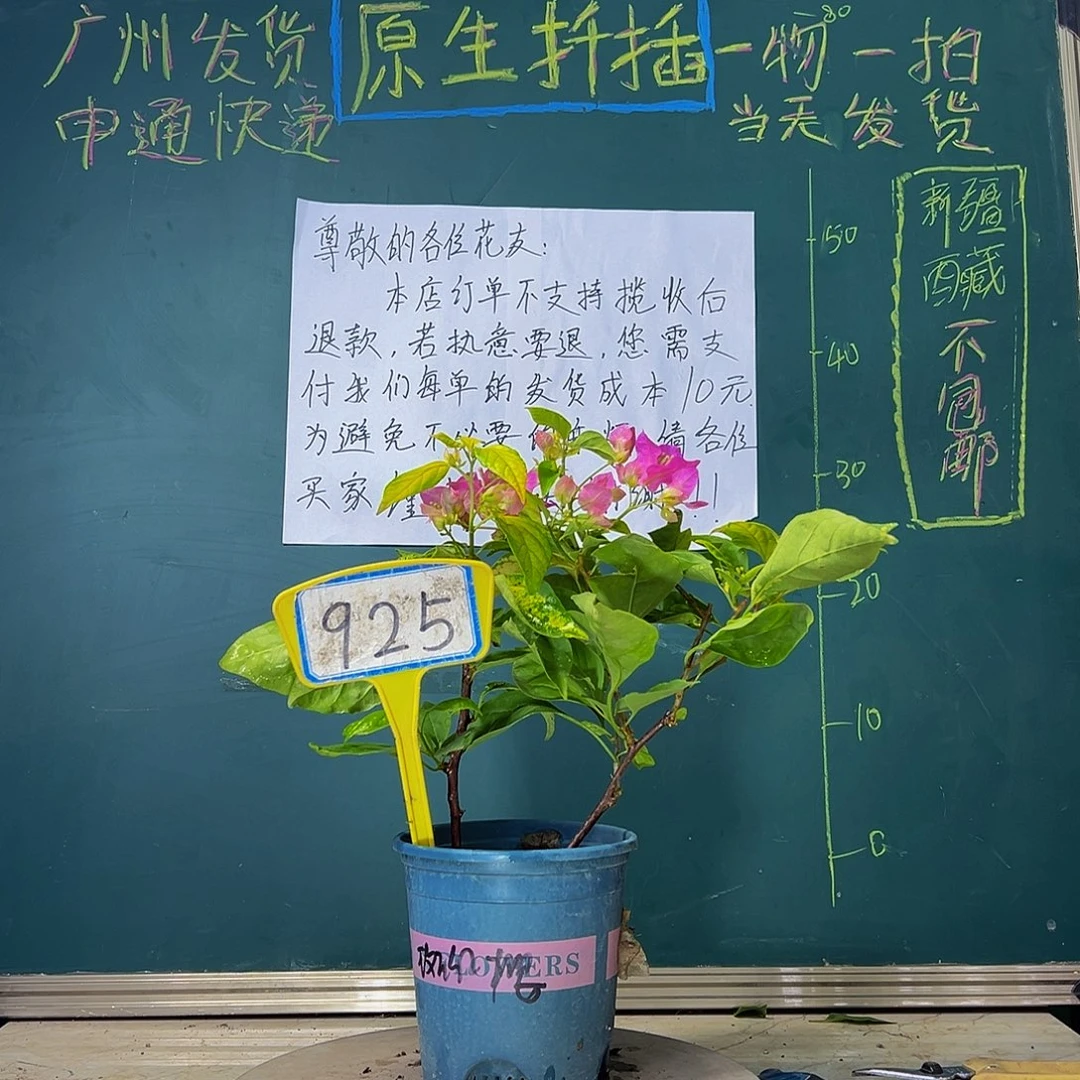 广州发货
申通快递
原生扦插
一物一拍
当天发货
新疆
西藏
不包邮
50
40
30
20
10
0
尊敬的各位花友:
本店订单不支持揽收后
退款,若执意要退,您需支
付我们每单的发货成本10元.
为避免不必要 各位
买家
!!
925
FLOWERS